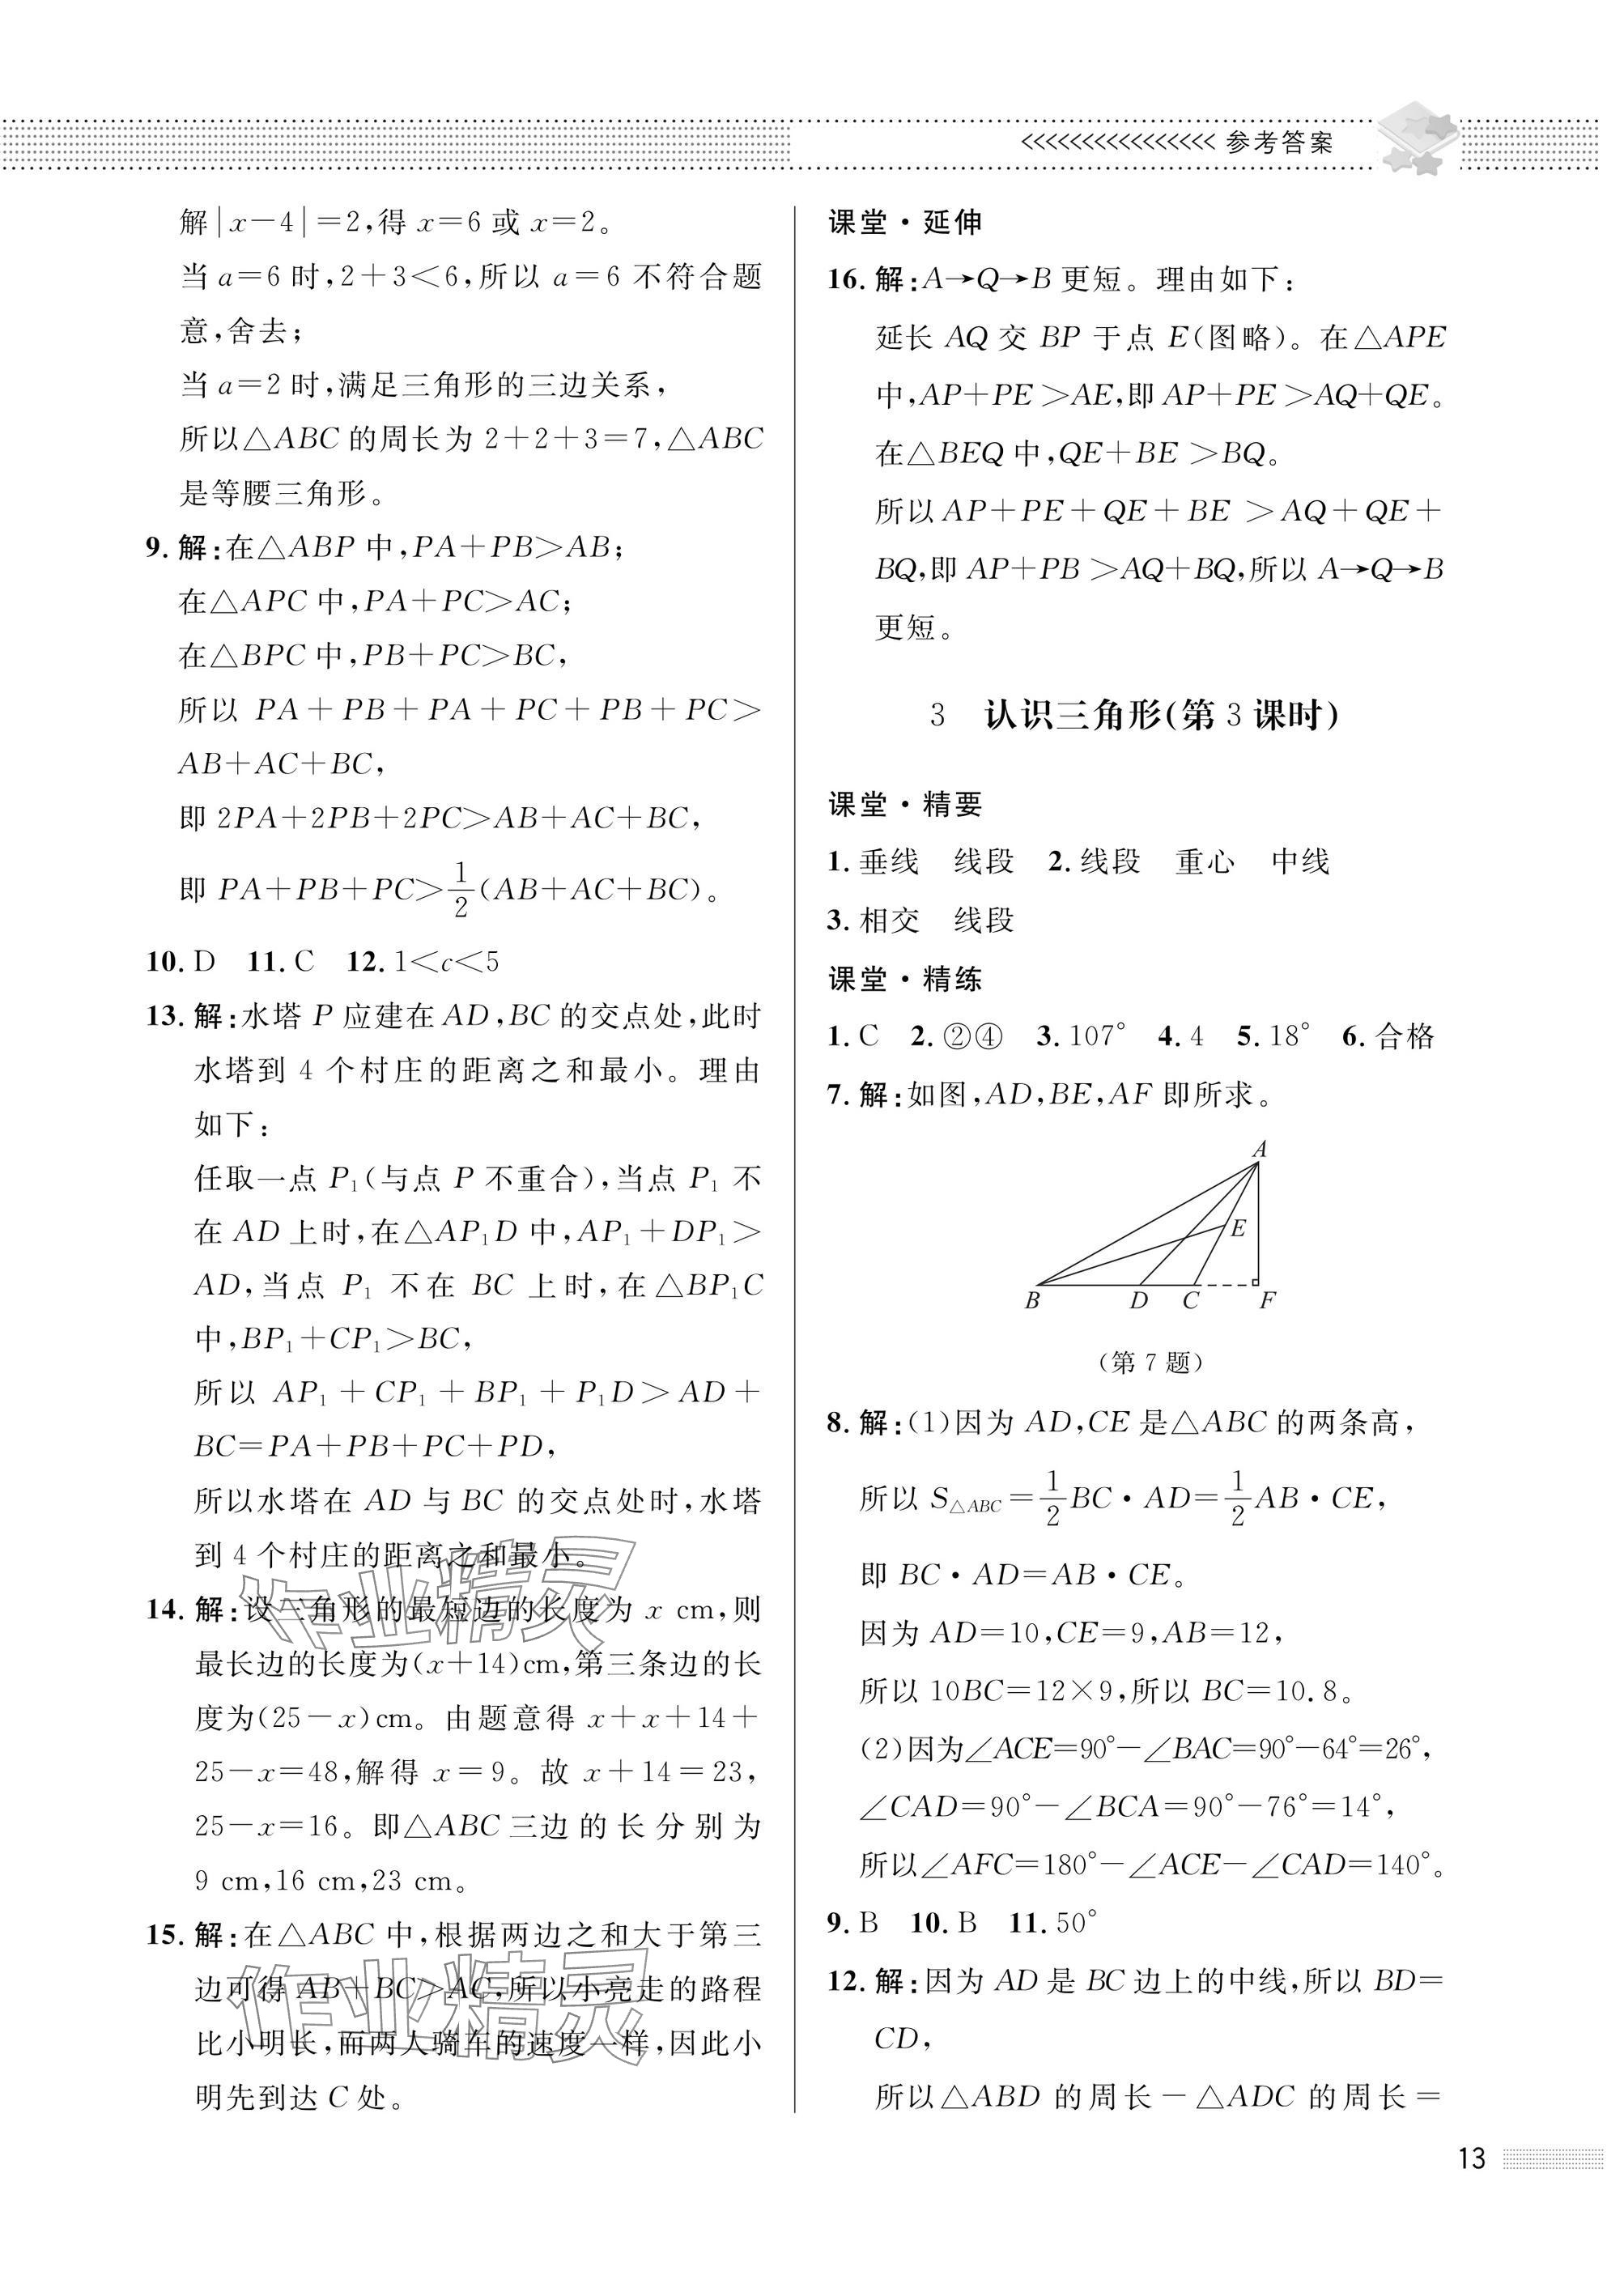 <<<<<<<<<<<<<<<< 参考答案
解|x－4|＝2,得 x＝6 或 x＝2。
当 a＝6 时,2＋3＜6,所以 a＝6 不符合题
意,舍去;
当 a＝2 时,满足三角形的三边关系,
所以△ABC 的周长为 2＋2＋3＝7,△ABC
是等腰三角形。
9. 解:在△ABP 中,PA＋PB＞AB;
在△APC 中,PA＋PC＞AC;
在△BPC 中,PB＋PC＞BC,
所以 PA＋PB＋PA＋PC＋PB＋PC＞
AB＋AC＋BC,
即 2PA＋2PB＋2PC＞AB＋AC＋BC,
即 PA＋PB＋PC＞1/2(AB＋AC＋BC)。
10. D 11. C 12. 1＜c＜5
13. 解:水塔 P 应建在 AD,BC 的交点处,此时
水塔到 4 个村庄的距离之和最小。理由
如下:
任取一点 P₁(与点 P 不重合),当点 P₁ 不
在 AD 上时,在△AP₁D 中,AP₁＋DP₁＞
AD,当点 P₁ 不在 BC 上时,在△BP₁C
中,BP₁＋CP₁＞BC,
所以 AP₁＋CP₁＋BP₁＋P₁D＞AD＋
BC＝PA＋PB＋PC＋PD,
所以水塔在 AD 与 BC 的交点处时,水塔
到 4 个村庄的距离之和最小。
作业精灵
14. 解:设三角形的最短边的长度为 x cm,则
最长边的长度为(x＋14)cm,第三条边的长
度为(25－x)cm。由题意得 x＋x＋14＋
25－x＝48,解得 x＝9。故 x＋14＝23,
25－x＝16。即△ABC 三边的长分别为
9 cm,16 cm,23 cm。
15. 解:在△ABC 中,根据两边之和大于第三
边可得 AB＋BC＞AC,所以小亮走的路程
作业精灵
比小明长,而两人骑车的速度一样,因此小
明先到达 C 处。
课堂·延伸
16. 解:A→Q→B 更短。理由如下:
延长 AQ 交 BP 于点 E(图略)。在△APE
中,AP＋PE＞AE,即 AP＋PE＞AQ＋QE。
在△BEQ 中,QE＋BE＞BQ。
所以 AP＋PE＋QE＋BE＞AQ＋QE＋
BQ,即 AP＋PB＞AQ＋BQ,所以 A→Q→B
更短。
3 认识三角形(第 3 课时)
课堂·精要
1. 垂线 线段 2. 线段 重心 中线
3. 相交 线段
课堂·精练
1. C 2. ②④ 3. 107° 4. 4 5. 18° 6. 合格
7. 解:如图,AD,BE,AF 即所求。
A
E
B D C F
(第 7 题)
8. 解:(1)因为 AD,CE 是△ABC 的两条高,
所以 S△ABC＝1/2BC·AD＝1/2AB·CE,
即 BC·AD＝AB·CE。
因为 AD＝10,CE＝9,AB＝12,
所以 10BC＝12×9,所以 BC＝10.8。
(2)因为∠ACE＝90°－∠BAC＝90°－64°＝26°,
∠CAD＝90°－∠BCA＝90°－76°＝14°,
所以∠AFC＝180°－∠ACE－∠CAD＝140°。
9. B 10. B 11. 50°
12. 解:因为 AD 是 BC 边上的中线,所以 BD＝
CD,
所以△ABD 的周长－△ADC 的周长＝
13